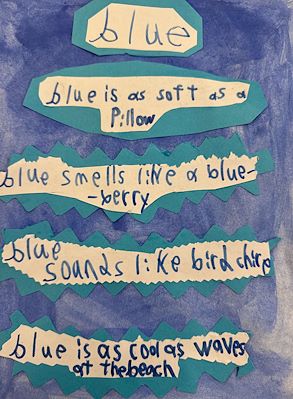 blue
blue is as soft as a
Pillow
blue smells like a blue-
-berry
blue
sounds like bird chirp
blue is as cool as waves
at the beach